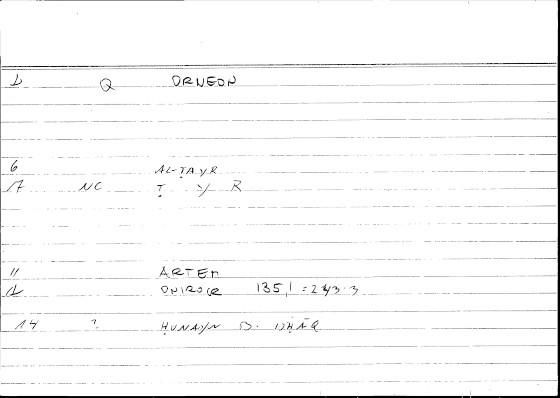 1 Q ORNEON
6 AL-ṬAYR
7 NC Ṭ Y R
11 ARTEM
12 ONIROCR 135,1 = 243.3
14 ? ḤUNAYN B. ISḤĀQ